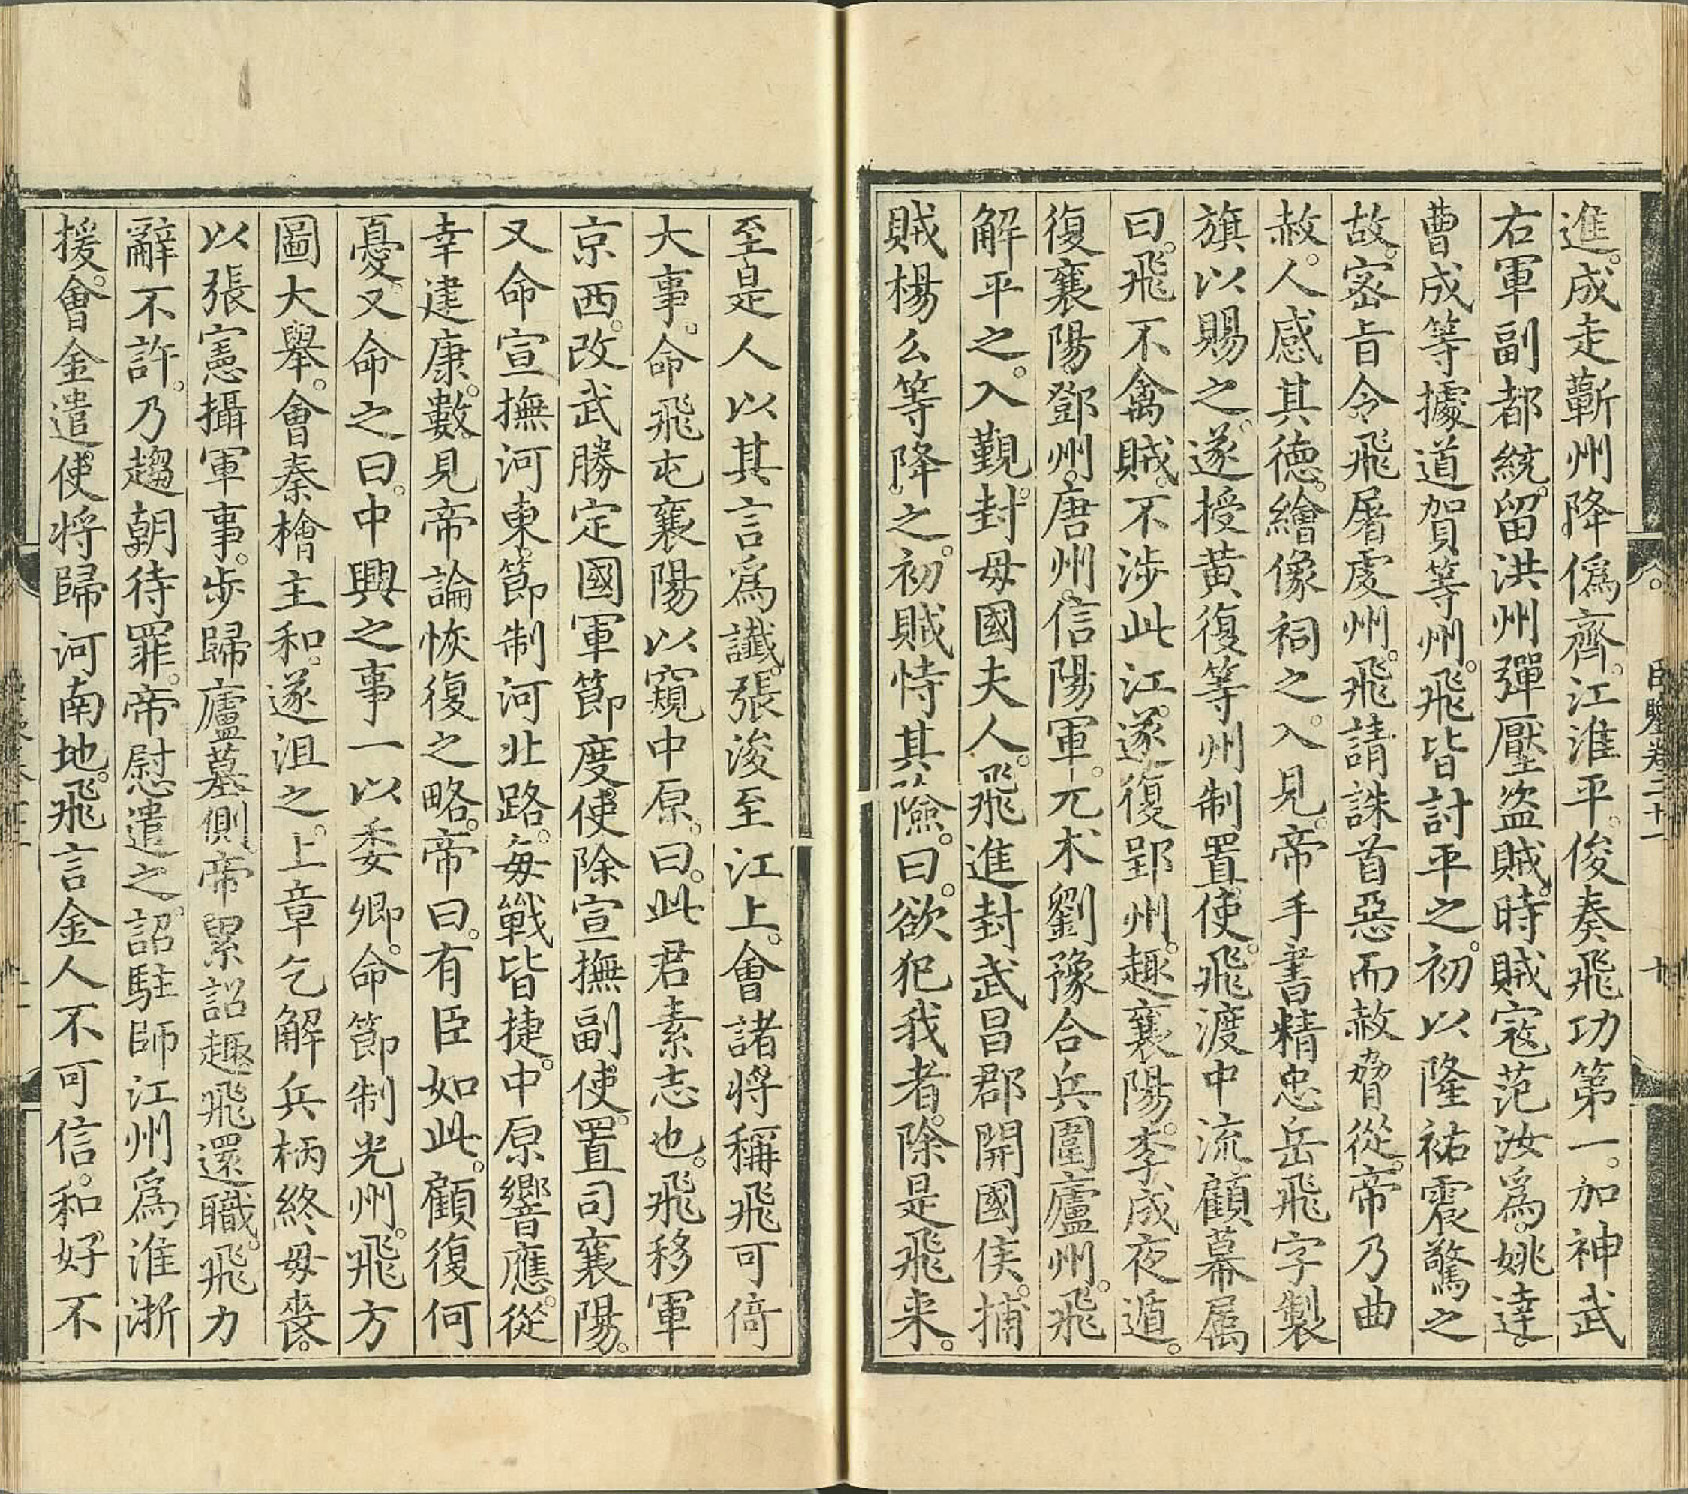 進。成走蘄州降僞齊。江淮平。俊奏飛功第一。加神武
右軍副都統。留洪州彈壓盜賊。時賊寇范汝爲。姚達。
曹成等據道賀等州。飛皆討平之。初以隆祐震驚之
故。密旨令飛屠虔州。飛請誅首惡而赦脅從。帝乃曲
赦。人感其德。繪像祠之。入見。帝手書精忠岳飛字製
旗以賜之。遂授黄復等州制置使。飛渡中流顧幕属
曰。飛不禽賊。不涉此江。遂復郢州。趣襄陽。李成夜遁。
復襄陽鄧州。唐州。信陽軍。兀术劉豫合兵圍廬州。飛
解平之。入覲。封母國夫人。飛進封武昌郡開國侯。捕
賊楊么等降之。初賊恃其險。曰。欲犯我者。除是飛来。
至是人以其言爲讖。張浚至江上。會諸將稱飛可倚
大事。命飛屯襄陽以窺中原。曰。此君素志也。飛移軍
京西。改武勝定國軍節度使。除宣撫副使。置司襄陽。
又命宣撫河東。節制河北路。每戰皆捷。中原響應。從
幸建康。數見帝論恢復之略。帝曰。有臣如此。顧復何
憂。又命之曰。中興之事一以委卿。命節制光州。飛方
圖大舉。會秦檜主和。遂沮之。上章乞解兵柄終母喪。
以張憲攝軍事。步歸廬墓側。帝累詔趣飛還職。飛力
辭不許。乃趨朝待罪。帝慰遣之。詔駐師江州爲淮浙
援。會金遣使將歸河南地。飛言金人不可信。和好不